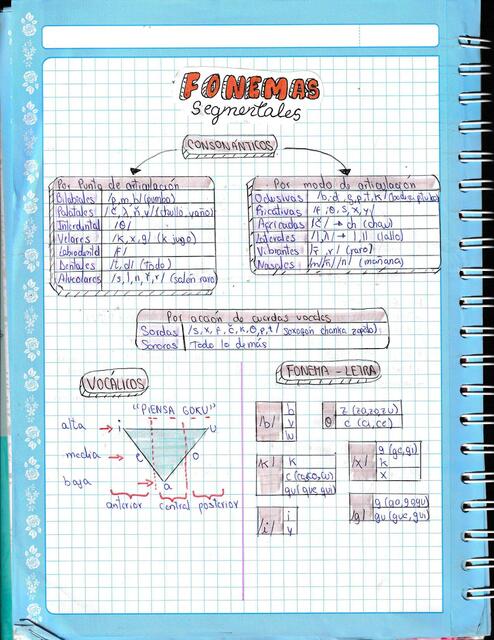 FONEMAS
Segmentales
CONSONÁNTICOS
Por Punto de articulación
Bilabiales /p, m, b/ (pumba)
Palatales
Interdental /θ/
Velares /k, x, g/ (k jugo)
Labiodental f/
Dentales /t, d/ (todo)
Alveolares /s, l, n, r̄, r/ (salón raro)
Por modo de articulación
Oclusivas
Fricativas /f, θ, s, x, y/
Africadas /č/ → ch (chau)
Laterales (lallo)
Vibrantes /r̄, r/ (raro)
Nasales (mañana)
Por acción de cuerdas vocales
Sordas /s, x, f, č, k, θ, p, t/
Sonoros Todo lo demás
VOCÁLICOS
"PIENSA GOKU"
alta → i u
media → e o
baja → a
anterior central posterior
FONEMA - LETRA
/b/ b
v
w
θ z (za, zo, zu)
c (ci, ce)
/k/ k
c (ca, co, cu)
qu (que, qui)
/x/ g (ge, gi)
x
/i/ i
y
/g/ g (ga, go, gu)
gu (gue, gui)